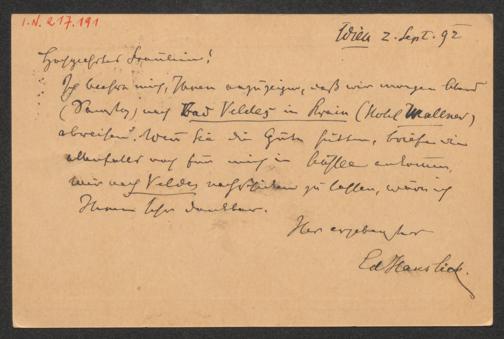 I.N. 217.191
Wien 2. Sept. 92
Hochgeehrtes Fräulein!
Ich beehre mich, Ihnen anzuzeigen, daß wir morgen Abend
(Samstag) nach Bad Veldes in Krain (Hotel Mallner)
abreisen. Wenn Sie die Güte hätten, Briefe die
allenfalls noch für mich in einkommen,
mir nach Veldes nachschicken zu lassen, wäre ich
Ihnen sehr dankbar.
Ihr ergebenster
Ed Hanslick.